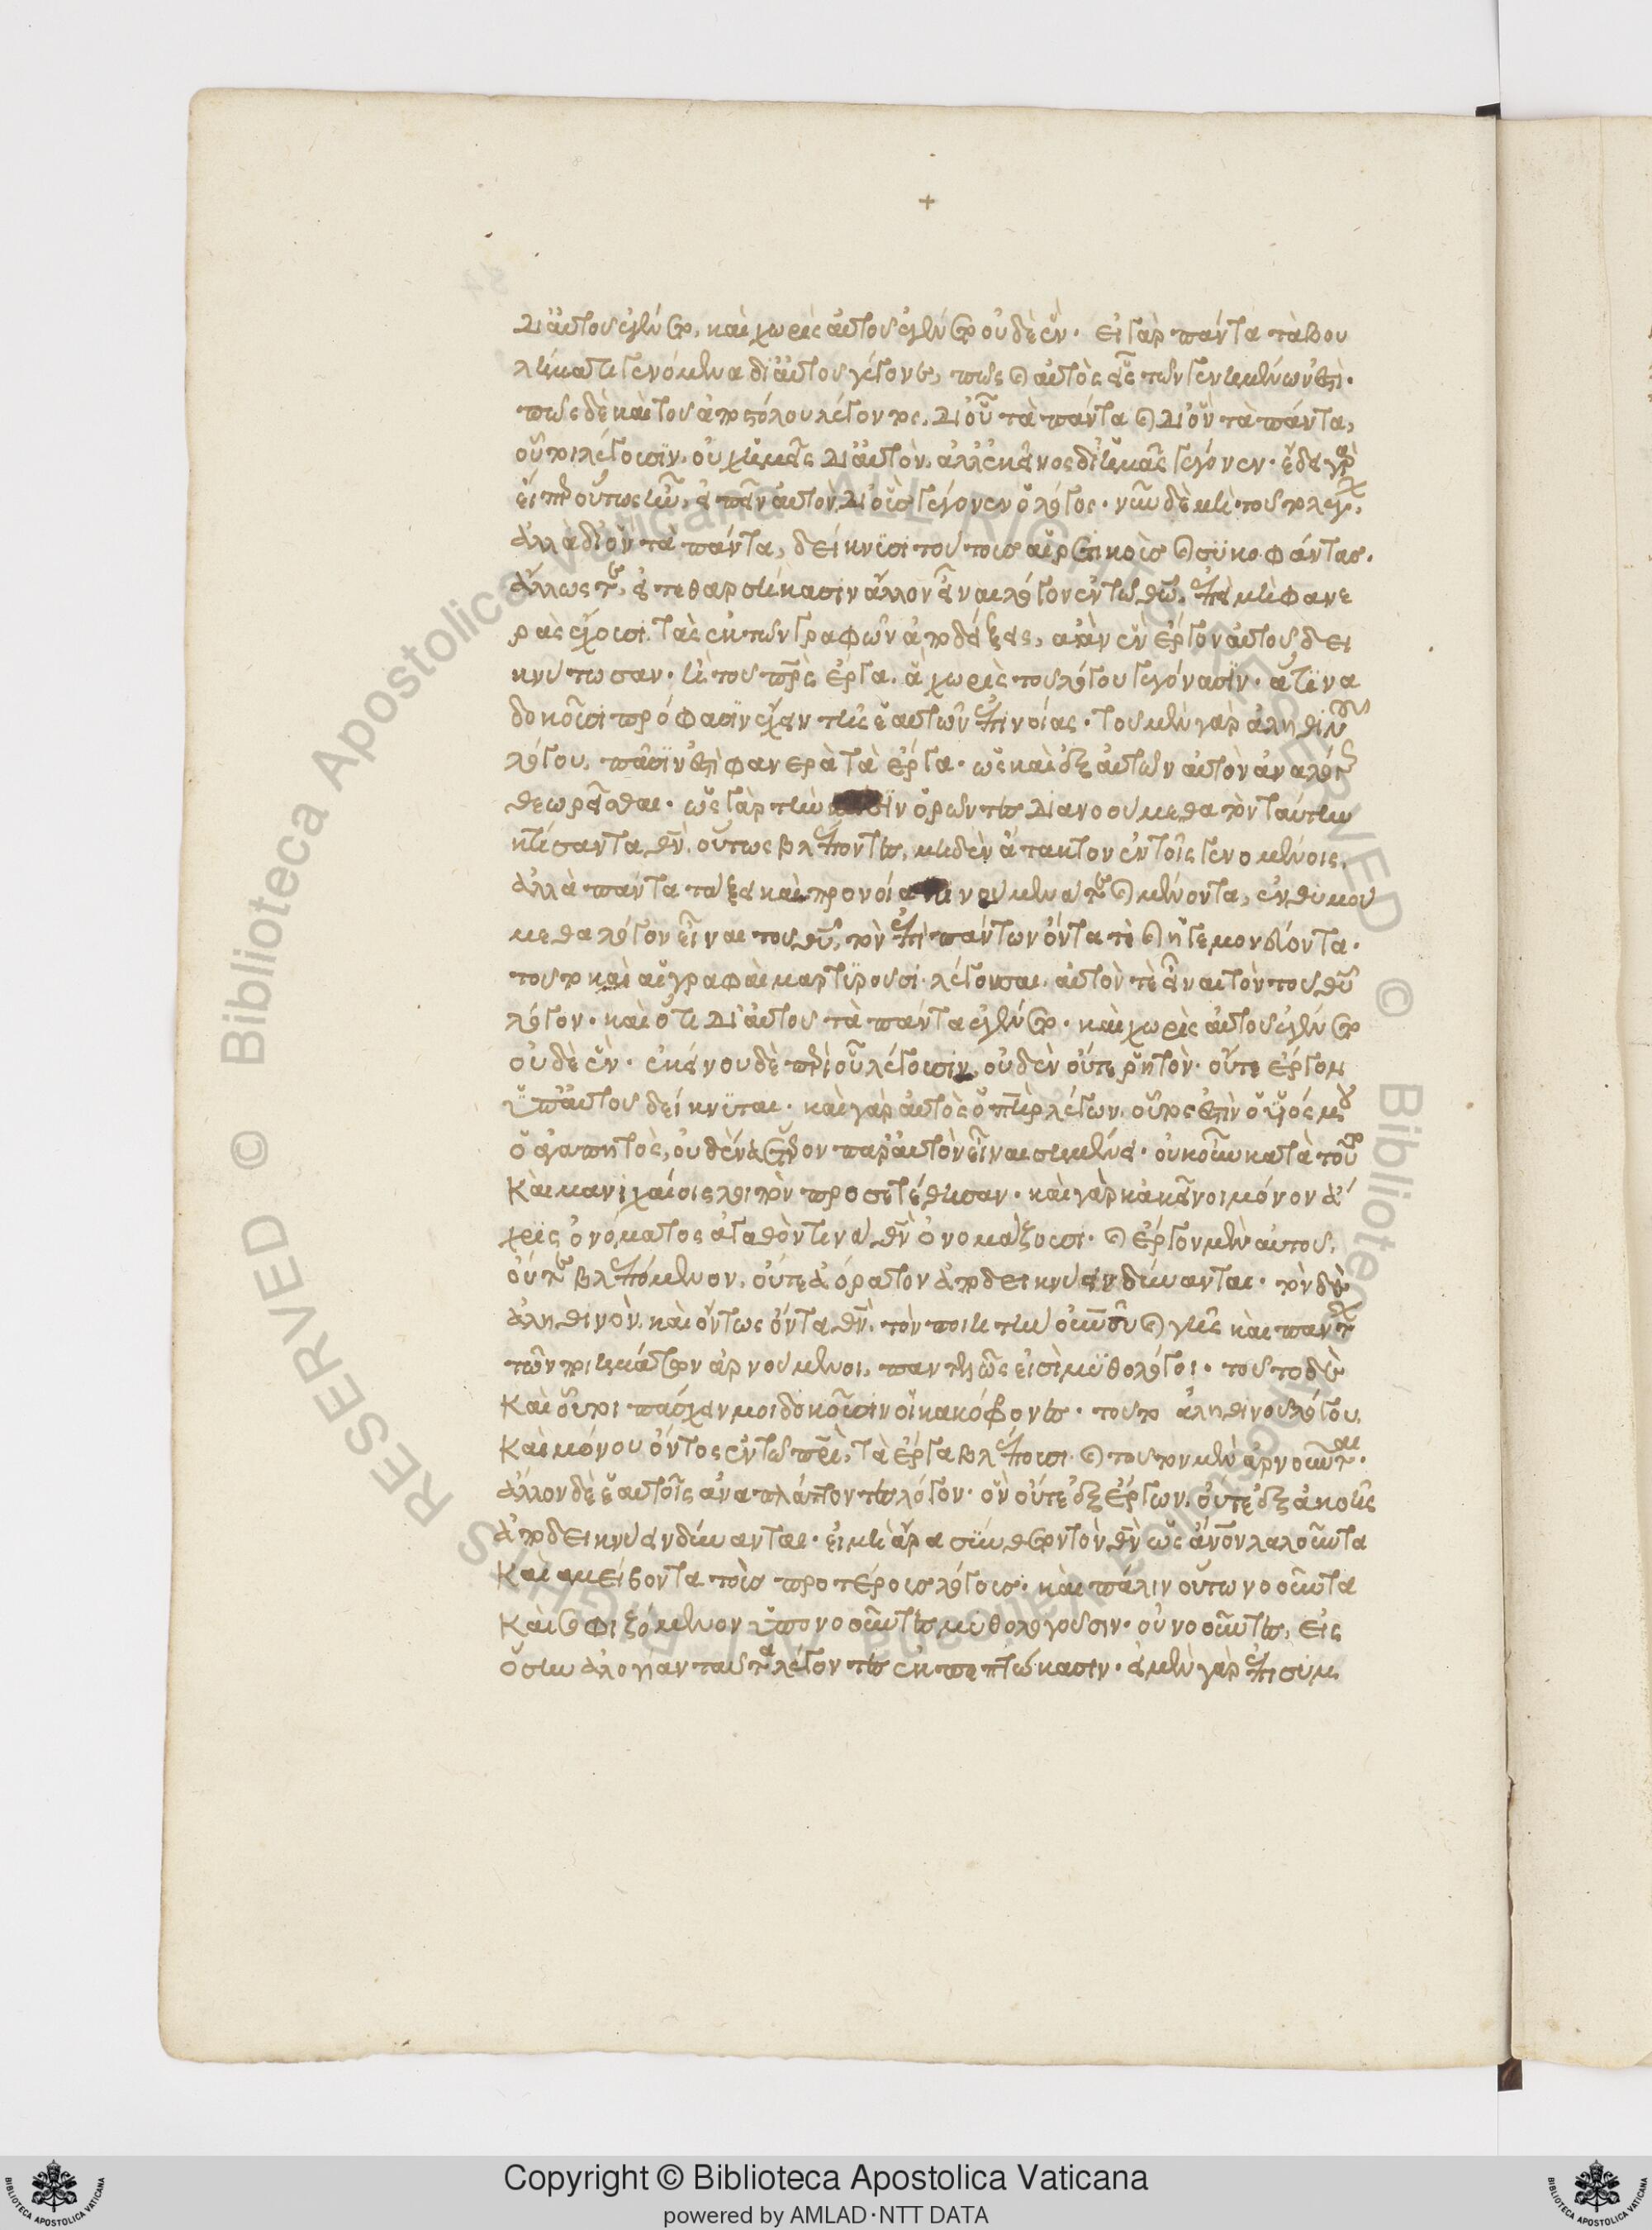 δι' αὐτοῦ ἐγένετο, καὶ χωρὶς αὐτοῦ ἐγένετο οὐδὲ ἕν· εἰ γὰρ πάντα τὰ βου
λήματι γενόμενα δι' αὐτοῦ γέγονε, πῶς καὶ αὐτὸς εἷς τῶν γεννημένων ἐστί·
πῶς δὲ καὶ τοῦ ἀποστόλου λέγοντος, δι' οὗ τὰ πάντα καὶ δι' ὃν τὰ πάντα,
οὗτοι λέγουσϊν, οὐχ ἡμεῖς δι' αὐτὸν, ἀλλ' ἐκεῖνος δι' ἡμᾶς γέγονεν· ἔδει γὰρ
εἴπερ οὕτως ἦν, εἰπεῖν αὐτὸν, δι' οὓς γέγονεν ὁ λόγος· νῦν δὲ μὴ τοῦτο λέγων,
ἀλλὰ δι' ὃν τὰ πάντα, δείκνϋσι τούτους αἱρετικοὺς καὶ σϋκοφάντας.
ἄλλως τε, εἰ τεθαρσήκασιν ἄλλον εἶναι λόγον ἐν τῷ θεῷ, ἐπεὶ μὴ φανε
ρὰς ἔχουσι τὰς ἐκ τῶν γραφῶν ἀποδείξεις, κἂν ἓν ἔργον αὐτοῦ δει
κνύτωσαν· ἢ τοῦ πρ̅ς ἔργα, ἃ χωρὶς τοῦ λόγου γεγόνασϊν· ἅτϊνα
δοκοῦσι πρόφασϊν ἔχειν τῆς ἑαυτῶν ἐπινοίας· τοῦ μὲν γὰρ ἀληθινοῦ
λόγου, πᾶσϊν ἐστὶ φανερὰ τὰ ἔργα· ὡς καὶ ἐξ αὐτῶν αὐτὸν ἀναλόγως
θεωρεῖσθαι· ὡς γὰρ τὴν κτίσϊν ὁρῶντες διανοούμεθα τὸν ταύτην
κτίσαντα θν̅, οὕτως βλέποντες, μηδὲν ἄτακτον ἐν τοῖς γενομένοις,
ἀλλὰ πάντα τάξει καὶ προνοίᾳ κινούμενά τε καὶ μένοντα, ἐνθυμού
μεθα λόγον εἶναι τοῦ θυ̅, τὸν ἐπὶ πάντων ὄντα τὲ καὶ ἡγεμονεύοντα.
τοῦτο καὶ αἱ γραφαὶ μαρτϋροῦσι λέγουσαι, αὐτὸν τὲ εἶναι τὸν τοῦ θυ̅
λόγον· καὶ ὅτι δι' αὐτοῦ τὰ πάντα ἐγένετο· καὶ χωρὶς αὐτοῦ ἐγένετο
οὐδὲ ἕν· ἐκείνου δὲ περὶ οὗ λέγουσιν, οὐδὲν οὔτε ῥητὸν· οὔτε ἔργον
ὑπ' αὐτοῦ δείκνϋται· καὶ γὰρ αὐτὸς ὁ πη̅ρ λέγων, οὗτός ἐστιν ὁ υἱός μου
ὁ ἀγαπητὸς, οὐδένα ἕτερον παρ' αὐτὸν εἶναι σημαίνει· οὐκοῦν κατὰ τοῦτο
καὶ μανιχαίοις λοιπὸν προσετέθησαν· καὶ γὰρ κἀκεῖνοι μόνον ἄ
χρις ὀνόματος ἀγαθὸν τινὰ θν̅ ὀνομάζουσι· καὶ ἔργον μὲν αὐτοῦ,
οὔτε βλεπόμενον, οὔτε ἀόρατον ἀποδεικνύειν δύνανται· τὸν δὲ
ἀληθινὸν καὶ ὄντως ὄντα θν̅, τὸν ποιητὴν οὐν̅οῦ καὶ γῆς καὶ πάντων
τῶν ποιημάτων ἀρνούμενοι, παντελῶς εἰσὶ μϋθολόγοι· τοῦτο δὲ
καὶ οὗτοι πάσχειν μοι δοκοῦσιν οἱ κακόφρονες· τοῦ τὸ ἀληθινοῦ λόγου,
καὶ μόνου ὄντος ἐν τῷ πρι̅, τὰ ἔργα βλέπουσι· καὶ τοῦτον μὲν ἀρνοῦνται·
ἄλλον δὲ ἑαυτοῖς ἀναπλάττονται λόγον· ὃν οὔτε ἐξ ἔργων, οὔτε ἐξ ἀκοῆς
ἀποδεικνύειν δύνανται· εἰ μὴ ἄρα σύνθετον τὸν θν̅ ὡς ἄνον̅ λαλοῦντα
καὶ ἀμείβοντα τοὺς προτέρους λόγους· καὶ πάλιν οὕτω νοοῦντα
καὶ σοφιζόμενον ὑπονοοῦντες μυθολογοῦσιν· οὐ νοοῦντες, εἰς
ὅσην ἀλογίαν ταῦτα λέγοντες ἐκπεπτώκασιν· εἰ μὲν γὰρ